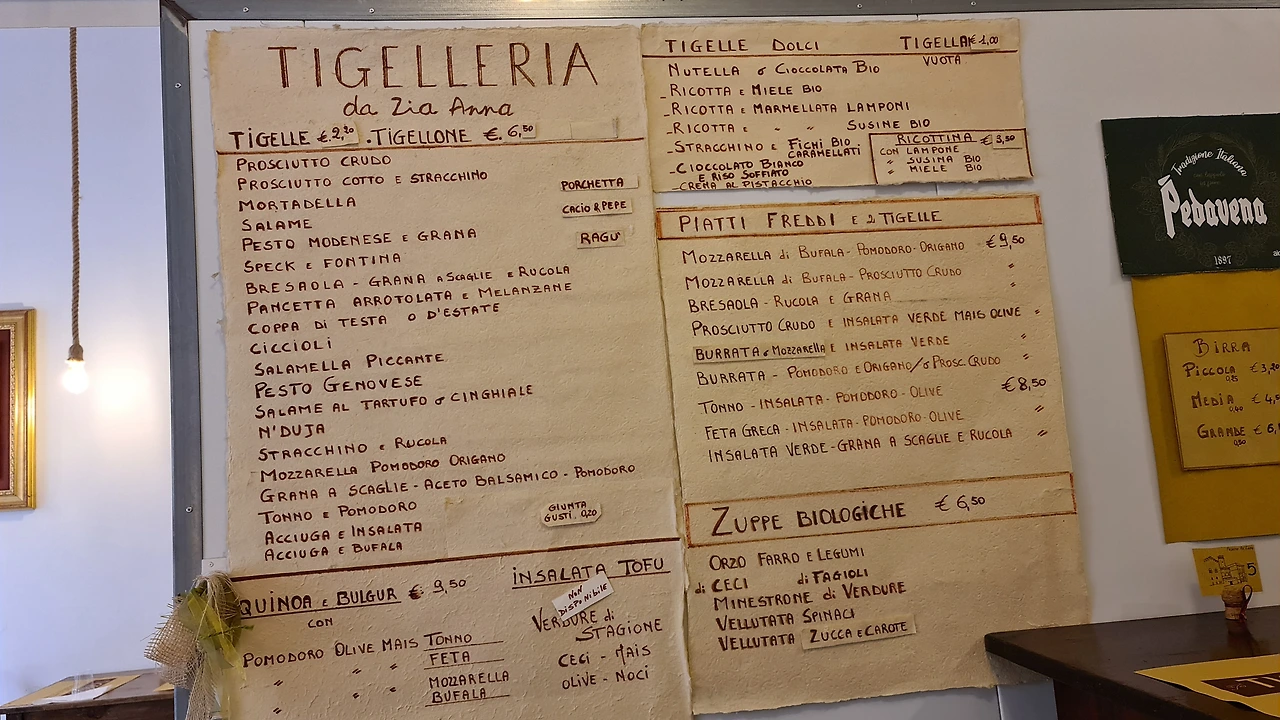 TIGELLERIA
da Zia Anna
TIGELLE €.2,20 . TIGELLONE €. 6,50
PROSCIUTTO CRUDO
PROSCIUTTO COTTO E STRACCHINO
MORTADELLA
SALAME
PESTO MODENESE E GRANA
SPECK E FONTINA
BRESAOLA - GRANA A SCAGLIE E RUCOLA
PANCETTA ARROTOLATA E MELANZANE
COPPA DI TESTA O D'ESTATE
CICCIOLI
SALAMELLA PICCANTE
PESTO GENOVESE
SALAME AL TARTUFO O CINGHIALE
N'DUJA
STRACCHINO E RUCOLA
MOZZARELLA POMODORO ORIGANO
GRANA A SCAGLIE - ACETO BALSAMICO - POMODORO
TONNO E POMODORO
ACCIUGA E INSALATA
ACCIUGA E BUFALA
PORCHETTA
CACIO & PEPE
RAGU'
GIUNTA
GUSTI. 0,20
QUINOA E BULGUR €. 9,50
CON
POMODORO OLIVE MAIS TONNO
" " " FETA
" " " MOZZARELLA
BUFALA
INSALATA TOFU
NON
DISPONIBILE
VERDURE di
STAGIONE
CECI - MAIS
OLIVE - NOCI
TIGELLE DOLCI TIGELLA € 1,00
VUOTA
NUTELLA o CIOCCOLATA BIO
- RICOTTA E MIELE BIO
- RICOTTA E MARMELLATA LAMPONI
- RICOTTA E " " SUSINE BIO
- STRACCHINO E FICHI BIO
CARAMELLATI
- CIOCCOLATO BIANCO
E RISO SOFFIATO
- CREMA AL PISTACCHIO
RICOTTINA € 3,50
CON LAMPONE
" SUSINA BIO
" MIELE BIO
PIATTI FREDDI E 2 TIGELLE
MOZZARELLA di BUFALA - POMODORO - ORIGANO € 9,50
MOZZARELLA di BUFALA - PROSCIUTTO CRUDO "
BRESAOLA - RUCOLA E GRANA "
PROSCIUTTO CRUDO E INSALATA VERDE MAIS OLIVE "
BURRATA o MOZZARELLA E INSALATA VERDE "
BURRATA - POMODORO E ORIGANO/o PROSC. CRUDO "
TONNO - INSALATA - POMODORO - OLIVE € 8,50
FETA GRECA - INSALATA - POMODORO - OLIVE "
INSALATA VERDE - GRANA A SCAGLIE E RUCOLA "
ZUPPE BIOLOGICHE € 6,50
ORZO FARRO E LEGUMI
di CECI di FAGIOLI
MINESTRONE di VERDURE
VELLUTATA SPINACI
VELLUTATA ZUCCA E CAROTE
Tradizione Italiana
Pedavena
1897
BIRRA
PICCOLA € 3,20
0,25
MEDIA € 4,5
0,40
GRANDE € 6,
0,50
5